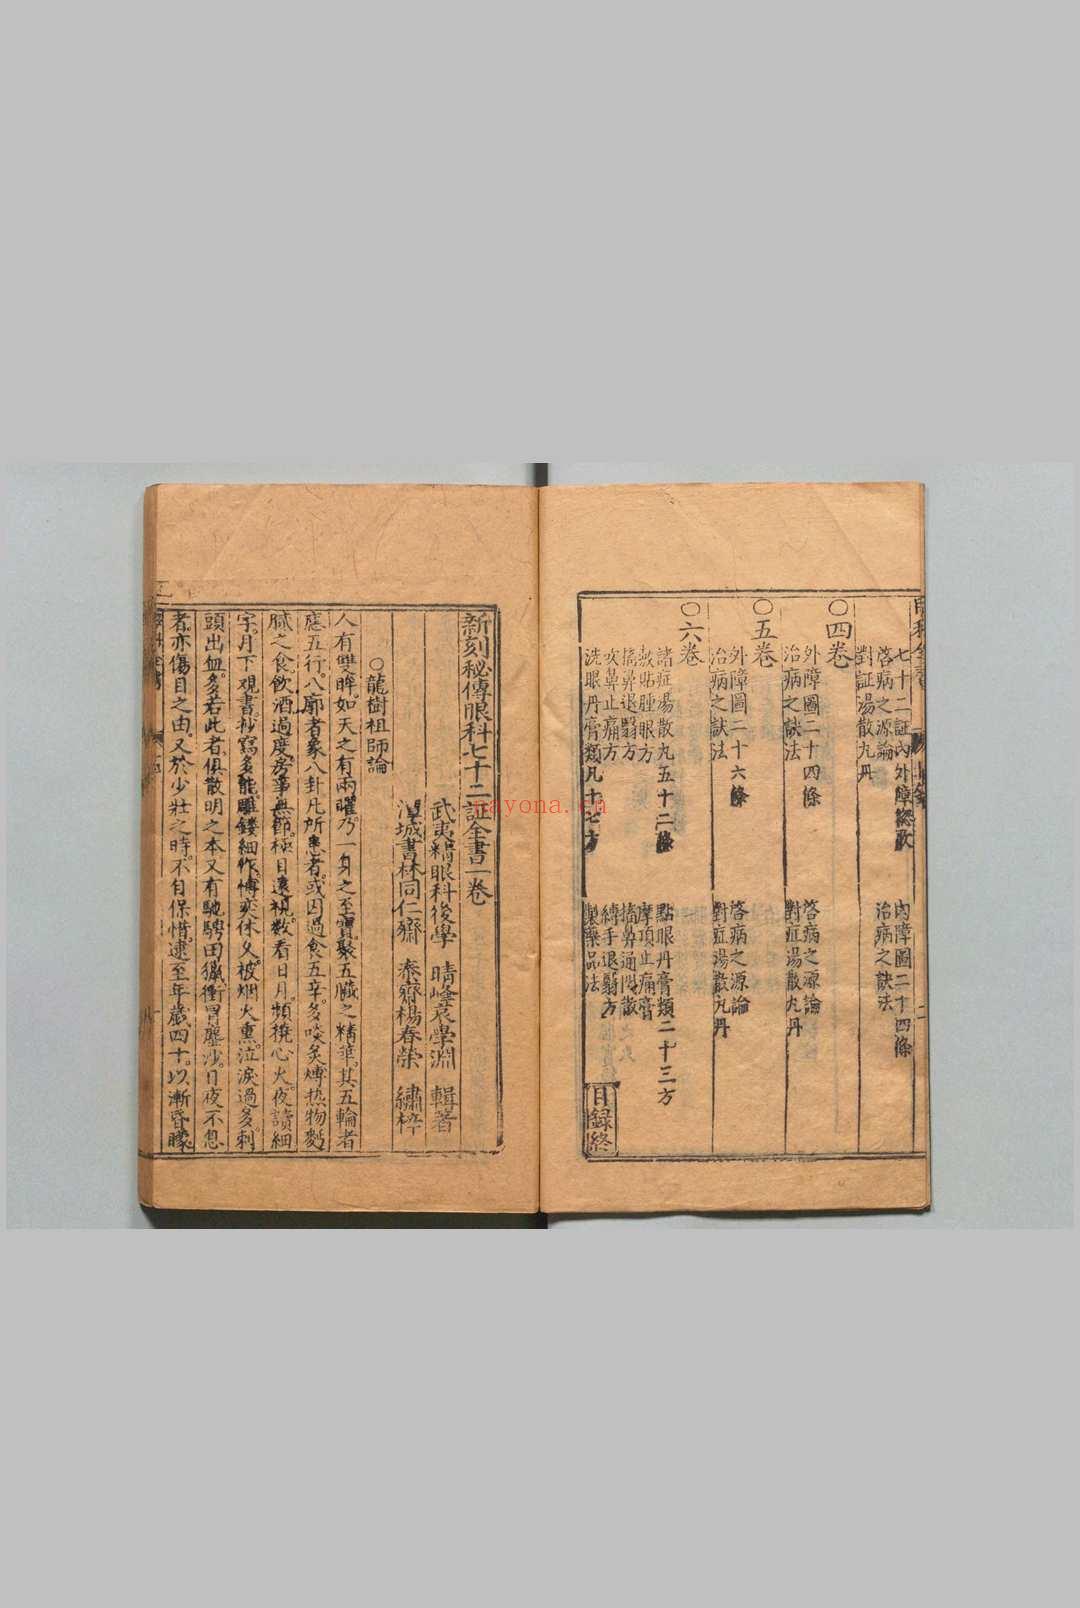 七十二証內外障總歌
內障圖二十四條
啓病之源論
治病之訣法
對証湯散丸丹
○四卷
外障圖二十四條
啓病之源論
治病之訣法
對症湯散丸丹
○五卷
外障圖二十六條
啓病之源論
治病之訣法
對症湯散丸丹
○六卷
諸症湯散丸五十二條
點眼丹膏類二十三方
敷貼腫眼方
摩頂止痛膏
搐鼻退翳方
搐鼻通關散
吹鼻止痛方
縛手退翳方
洗眼丹膏類凡十七方
製藥品法
目録終
新刻秘傳眼科七十二証全書一卷
武夷 眼科後學 晴峰袁學淵 輯著
潭城書林同仁齋 泰齋楊春榮 繡梓
○龍樹祖師論
人有雙眸。如天之有兩曜。乃一身之至寶。聚五臟之精華。其五輪者
應五行。八廓者象八卦。凡所患者。或因過食五辛。多啖炙煿热物麪
膩之食。飲酒過度。房事無節。極目遠視。数看日月。頻撓心火。夜讀細
字。月下观書。抄寫多能。雕鏤細作。博奕休久。被烟火熏。泣淚過多。刺
頭出血。多若此者。俱散明之本。又有馳騁田獵。衝冒塵沙。日夜不息
者。亦傷目之由。又於少壯之時。不自保惜。逮至年歲四十。以漸昏矇。
nayona.cn